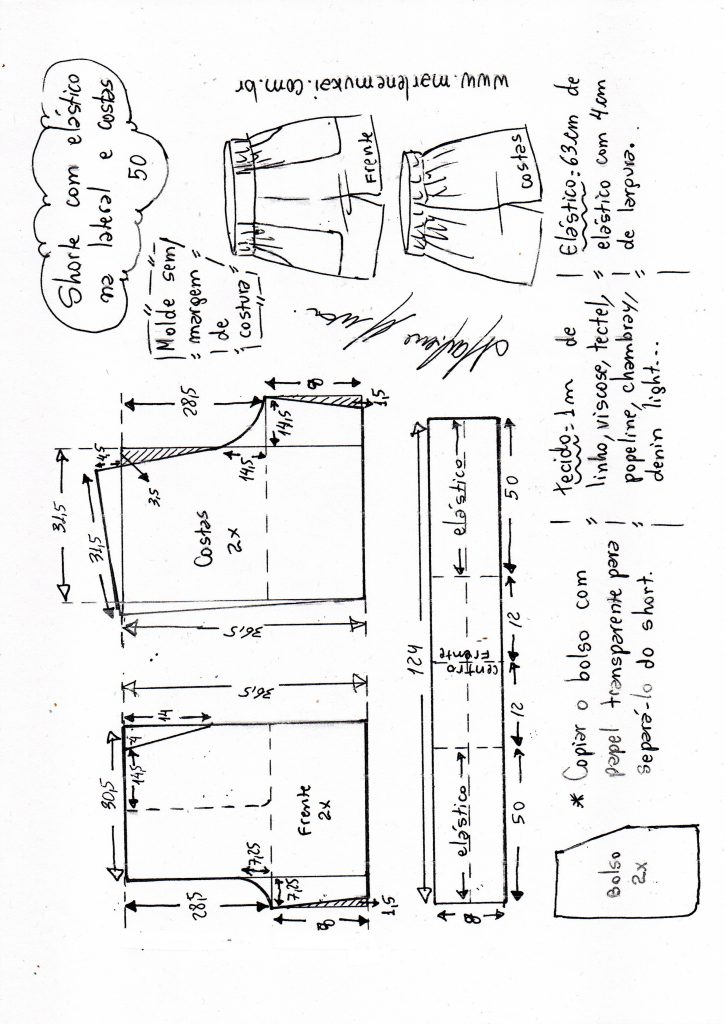 Shorte com elástico
na lateral e costas
50
Molde sem
margem
de
costura
www.marlenemukai.com.br
Frente
costas
Elástico: 63cm de
elástico com 4cm
de largura.
tecido: 1m de
linho, viscose, tectel,
popeline, chambray,
denin light...
* Copiar o bolso com
papel transparente para
separá-lo do short.
Bolso
2x
Costas
2x
31,5
31,5
4,5
3,5
28,5
14,5
14,5
8
1,5
36,5
Frente
2x
36,5
14
4
14,5
30,5
28,5
7,25
7,25
8
1,5
124
elástico
centro
Frente
elástico
50
12
12
50
8